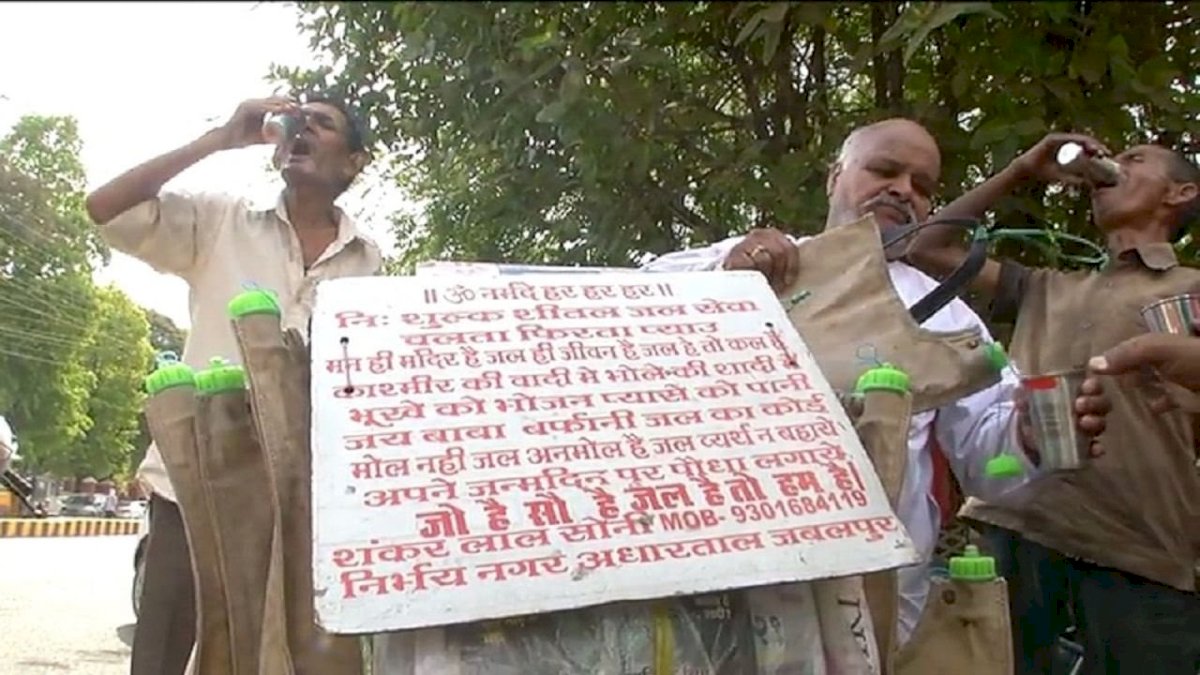 ॥ ॐ नर्मदे हर हर हर ॥
निः शुल्क शीतल जल सेवा
चलता फिरता प्याउ
मन ही मंदिर है जल ही जीवन है जल हे तो कल है
काश्मीर की वादी मे भोले-की शादी मे
भूखे को भोजन प्यासे को पानी
जय बाबा बर्फानी जल का कोई
मोल नही जल अनमोल है जल व्यर्थ न बहाये
अपने जन्मदिन पर पौधा लगाये
जो है सौ है जल है तो हम है।
शंकर लाल सोनी MOB- 9301684119
निर्भय नगर अधारताल जबलपुर